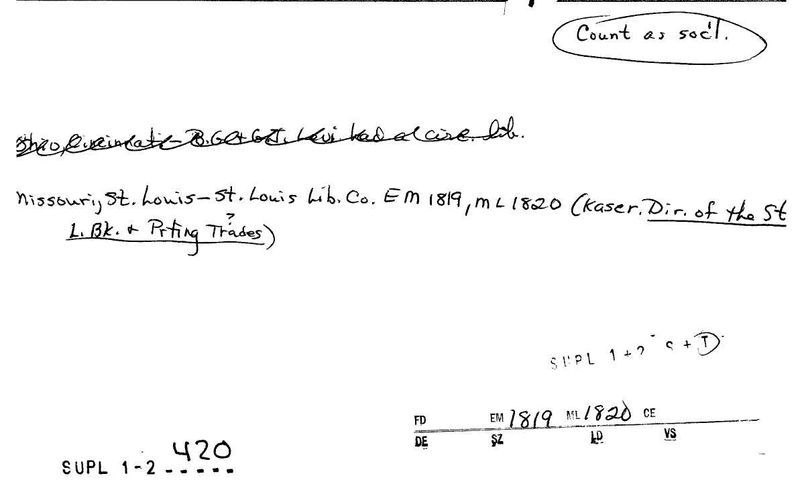 Count as soc'l.
Ohio, Cincinnati - B. G. & G. J. Levi had a circ. lib.
Missouri, St. Louis - St. Louis Lib. Co. EM 1819, ML 1820 (Kaser. Dir. of the St
L. Bk. + Prting Trades)
?
SUPL 1+2 S + T
FD EM 1819 ML 1820 CE
DE SZ LD VS
SUPL 1-2 420